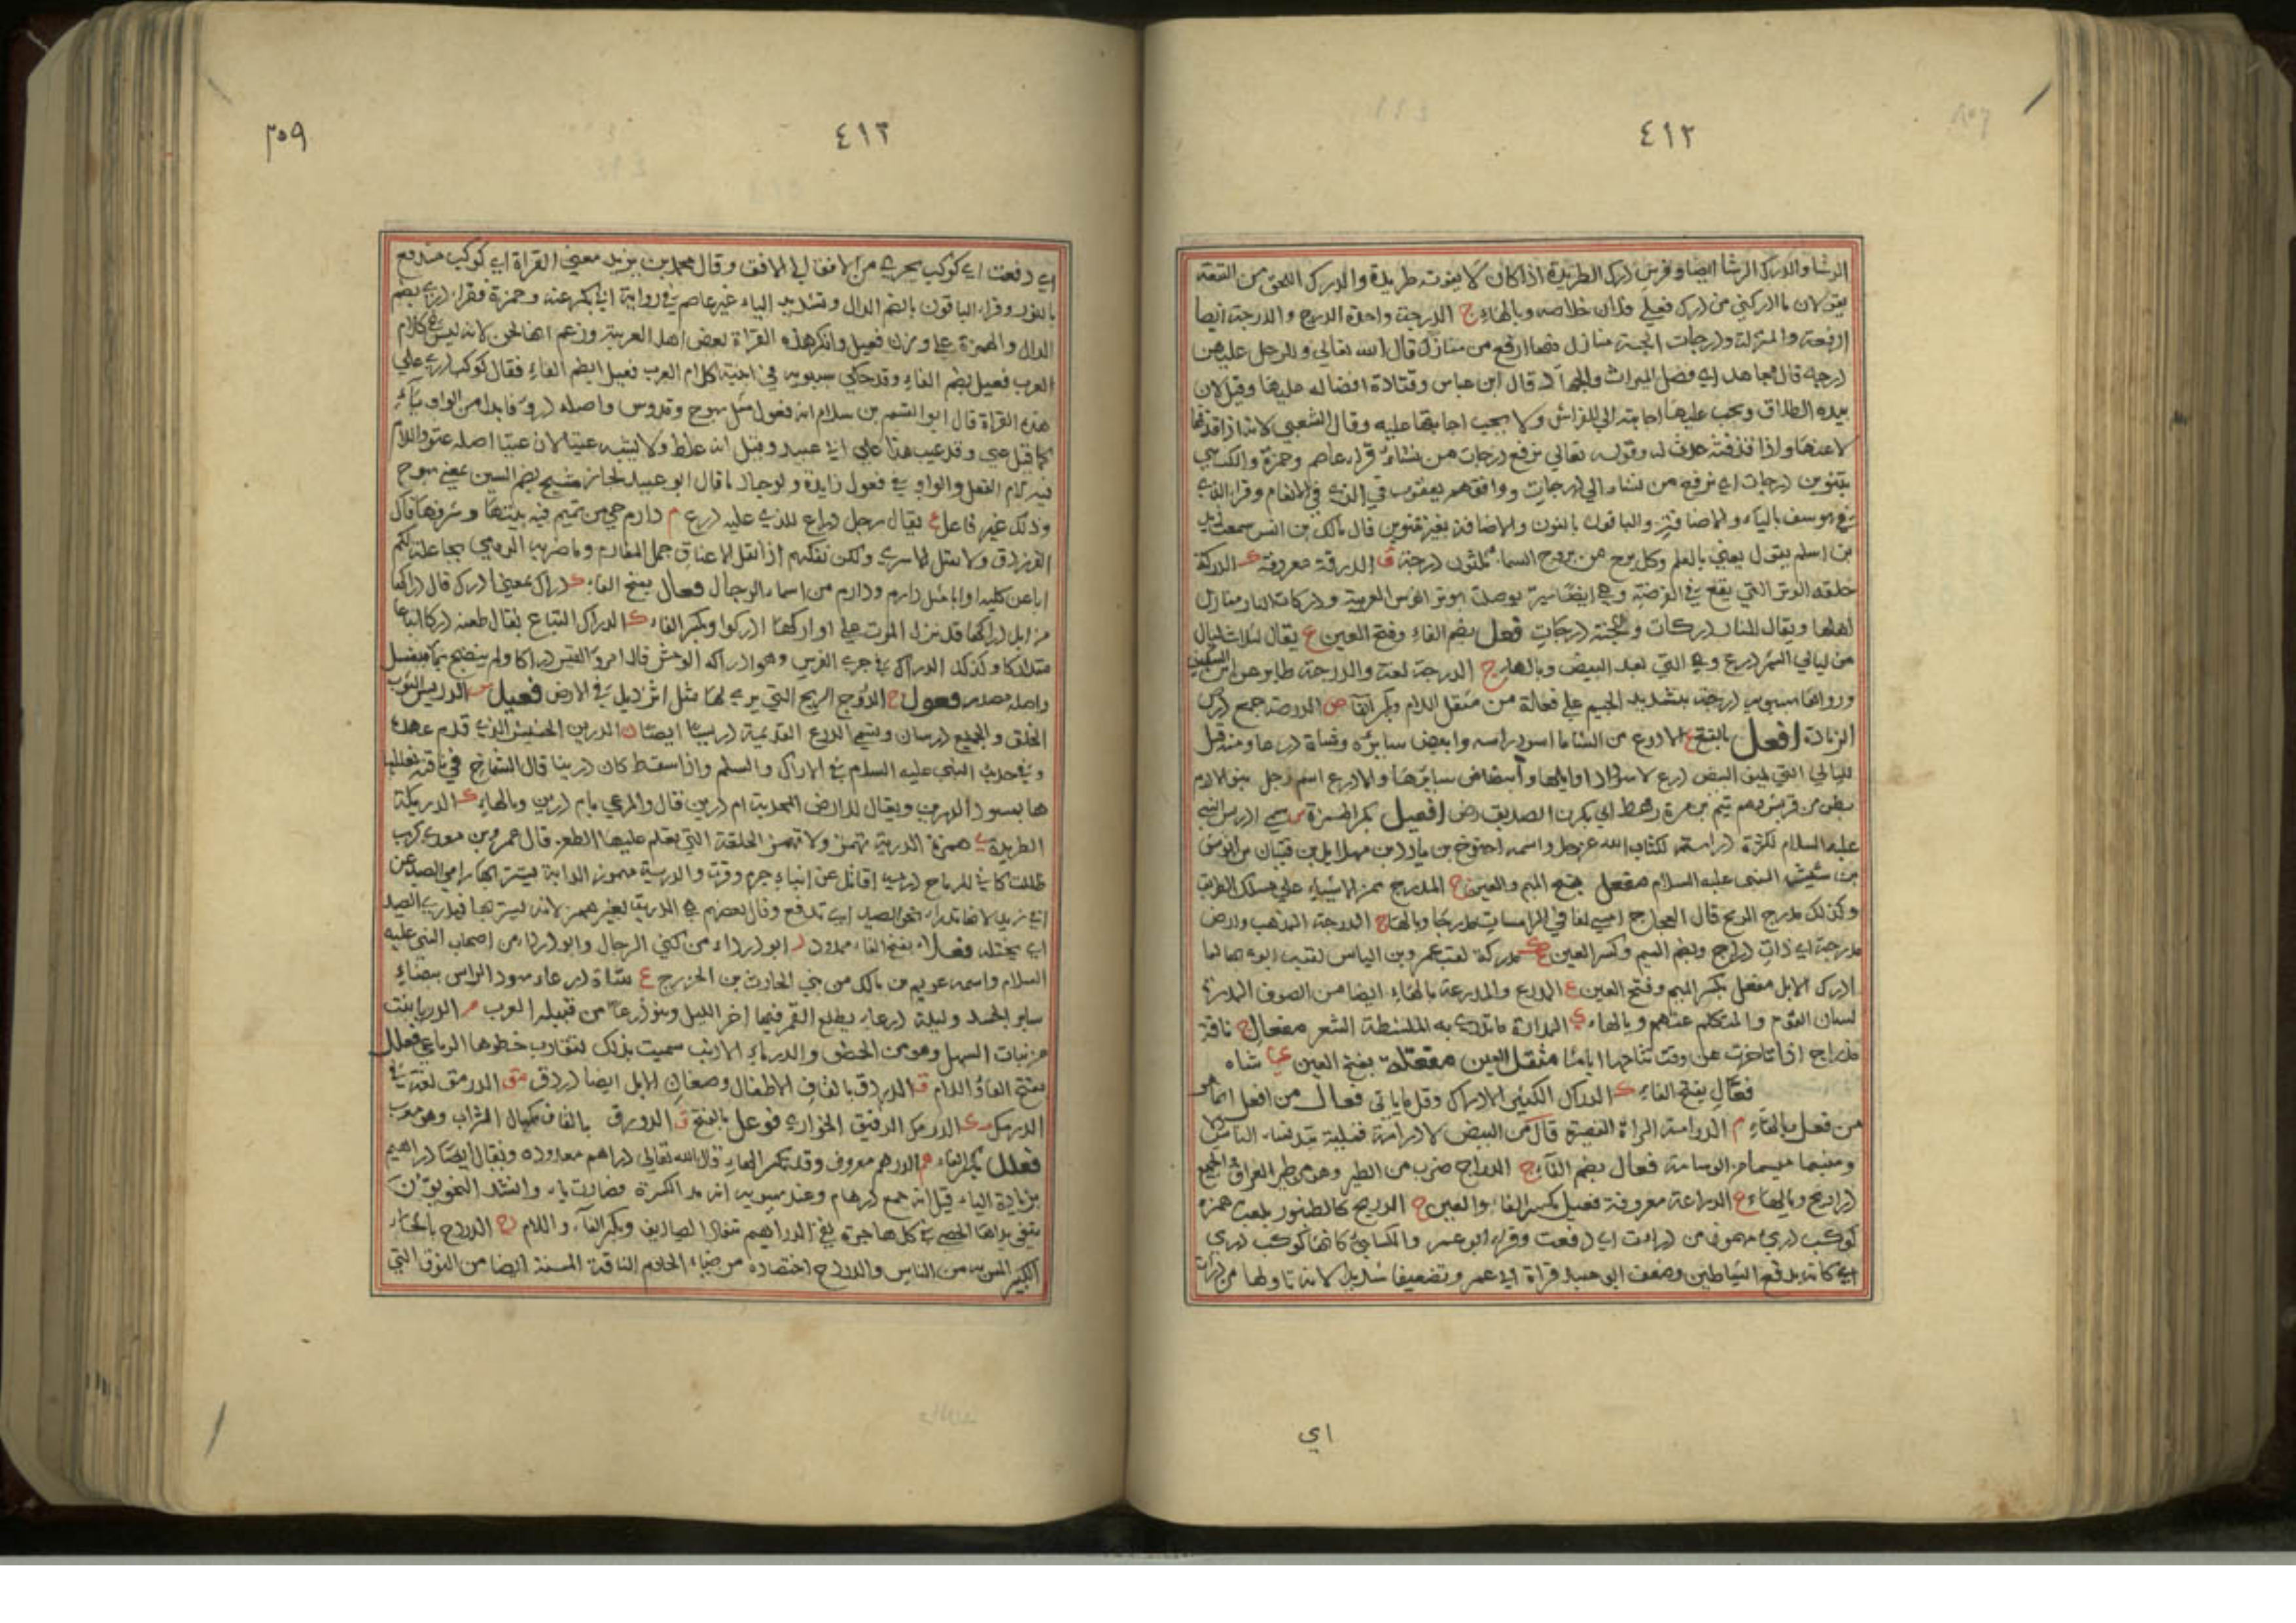 ٤١٢
الرشا والدرك الرشا ايضا وفرس درك الطريدة اذا كان لا يفوته طريدة والدرك اللحق من التبعة
يقولان ما ادركني من درك فعلي خلاصه وبالهاء ج الدرجة واحدة الدرج والدرجة ايضا
الرفعة والمنزلة ودرجات الجنة منازل بعضها ارفع من منازل قال الله تعالي وللرجال عليهن
درجة قال مجاهد اي فضل الميراث والجهاد قال ابن عباس وقتادة افضاله عليها وقيل لان
بيده الطلاق ويجب عليها اجابته الي الفراش ولا يجب اجابتها عليه وقال الشعبي لانه اذا قذفها
لاعنها واذا قذفته حلف له وقوله تعالي نرفع درجات من نشاء قراء عاصم وحمزة والكسائي
بتنوين درجات اي نرفع من نشاء الي درجات ووافقهم يعقوب في التي في الانعام وقراء التي
في يوسف بالياء والاضافة والباقون بالنون والاضافة بغير تنوين قال مالك بن انس سمعت زيد
بن اسلم يقول يعني بالعلم وكل برج من بروج السماء ثلثون درجة ق الدرقة معروفة ك الدركة
حلقة الوتر التي تقع في الفرضة وهي ايضا سير يوصل بوتر القوس العربية ودركات النار منازل
اهلها ويقال للنار دركات وللجنة درجات فعل بضم الفاء وفتح العين ع يقال لثلاث ليال
من ليالي الشهر درع وهي التي بعد البيض وبالهاء ج الدرجة لغة والدرجة طاير عن ابن السكيت
ورواها سيبويه درجة بتشديد الجيم علي فعلة من مثقل اللام وبكر الفاء ص الدرصة جمع درص
الزيادة افعل بالفتح ع الادرع من الشاء ما اسود راسه وابيض سايره وشاة درعا ومنه قيل
لليالي التي تلي البيض درع لاسوداد اوايلها وابيضاض سايرها والادرع اسم رجل بنو الادرم
بطن من قريش وهم تيم بن مرة رهط ابي بكر الصديق رض افعيل بكسر الهمزة س سمي ادريس النبي
عليه السلام لكثرة دراسته لكتاب الله عز وجل واسمه اخنوخ بن يارد بن مهلايل بن قينان بن انوش
بن شيث النبي عليه السلام مفعل بفتح الميم والعين ج المدرج ممر الاشياء علي مسلك الطريق
وكذلك مدرج الريح قال العجاج وبالهاء ج المدرجة المذهب وارض
مدرجة اي ذات دراج وبضم الميم وكسر العين ك مدركة لقب عمرو بن الياس لقبه ابوه بها لما
ادرك الابل مفعل بكسر الميم وفتح العين ع المدرع والمدرعة بالهاء ايضا من الصوف المدره
لسان القوم والمتكلم عنهم وبالهاء ي المدراة ما تدري به الماشطة الشعر مفعال ج ناقة
مدراج اذا تاخرت عن وقت نتاجها اياما مثقل العين مفعلة بفتح العين شاه
فعال بفتح الفاء ك الدراك الكثير الادراك وقل ما ياتي فعال من افعل انما هو
من فعل بالهاء م الدرامة المراة القصيرة قال من البيض لا درامة
ومنسما ميسما من الوسامة فعال بضم الفاء ج الدراج ضرب من الطير وهو من طير العراق والجميع
دراريج وبالهاء ع الدراعة معروفة فعيل بكسر الفاء والعين ج الدريج كالطنبور يلعب همزه
كوكب دريء مهموز من درات اي دفعت وقراء ابو عمر والكسائي كانها كوكب دريء
اي كانه يدفع الشياطين وضعف ابو عبيد قراة ابي عمر وتضعيفا شديدا لانه تاولها من درات
اي
٣٥٩
٤١٣
اي دفعت اي كوكب يجري من الافق الي الافق وقال محمد بن يزيد معني القراة اي كوكب مندفع
بالنور وقراء الباقون بالضم الدال وتشديد الياء غير عاصم في رواية ابي بكر عنه وحمزة فقراء دريء بضم
الدال والهمزة علي وزن فعيل وانكر هذه القراة بعض اهل العربية وزعم انها لحن لانه ليس في كلام
العرب فعيل بضم الفاء وقد حكي سيبويه في ابنية كلام العرب فعيل بضم الفاء فقال كوكب دريء علي
هذه القراة قال ابو القسم بن سلام انه فعول مثل سبوح وقدوس واصله دروء فابدل من الواو ياء
كما قيل عتي وقد عيب هذا علي ابي عبيد وقيل انه غلط ولا يشبه عتيا لان عتيا اصله عتو واللام
فيه لام الفعل والواو في فعول زايدة ولو جاز ما قال ابو عبيد لجاز سبيح بضم السين بمعني سبوح
وذلك غير فاعل ع يقال رجل دارع للذي عليه درع م دارم حي من تميم فيه بيتها وشرفها قال
الفرزدق ولا نقتل الاسري ولكن نفكهم اذا اثقل الاعناق حمل المغارم وما ضربة الرومي بجاعلة لكم
ابا عن كليب او ابا مثل دارم ودارم من اسماء الرجال فعال بفتح الفاء ك دراك بمعني ادرك قال دراكها
من ابل دراكها قد نزل الموت علي اوراكها ادركوا وبكسر الفاء ك الدراك التباع يقال طعنه دراكا تباعا
متداركا وكذلك الدراك في جري الفرس وهو ادراكه الوحش قال امرؤ القيس دراكا ولم ينضح بماء فيغسل
واصله مصدر فعول ج الدروج الريح التي يري لها مثل اثر ذيل في الارض فعيل س الدريس الثوب
الخلق والجميع درسان وتسمي الدرع القديمة دريسا ايضا ن الدرين الحشيش الذي قدم عهده
وفي حديث النبي عليه السلام في الاراك والسلم واذا سقط كان درينا قال الشماخ في ناقة
ويقال للارض المجدبة ام درين قال والمرعي بام درين وبالهاء ك الدريكة
الطريدة ي همزة الدرية تهمز ولا تهمز الحلقة التي يتعلم عليها الطعن قال عمرو بن معدي كرب
ظللت كاني للرماح درية اقاتل عن ابناء جرم وفرت والدريئة مهموز الدابة يستتر بها رامي الصيد عن
ابي زيد لانها تدرا نحو الصيد اي تدفع وقال بعضهم هي الدرية بغير همز لانه يستتر بها فيدري الصيد
اي يختله فعلاء بفتح الفاء ممدود د ابو درداء من كني الرجال وابو درداء من اصحاب النبي عليه
السلام واسمه عويمر بن مالك من بني الحارث بن الخزرج ع شاة درعاء سود الراس بيضاء
ساير الجسد وليلة درعاء يطلع القمر فيها اخر الليل وبنو درعاء من قبيلة العرب م الدرما بنت
من نبات السهل وهو من الحمض والدرماء الارنب سميت بذلك لتقارب خطوها الرباعي فعلل
بفتح الفاء واللام ق الدردق بالقاف الاطفال وصغار الابل ايضا دردق مق الدرمق لغة في
الدرمك مك الدرمك الدقيق الحواري فوعل بالفتح ق الدورق بالقاف مكيال الشراب وهو معرب
فعلل بكسر الفاء هم الدرهم معروف وقد تكسر الهاء قال الله تعالي دراهم معدودة ويقال ايضا دراهيم
بزيادة الياء قيل انه جمع درهام وعند سيبويه انه مد الكسرة فصارت ياء وانشد النحويون
تنفي يداها الحصي في كل هاجرة نفي الدراهيم تنقاد الصياريف وبكسر الفاء واللام دح الدردح بالحاء
الكبير المسن من الناس والدردح الناقة المسنة ايضا من النوق التي